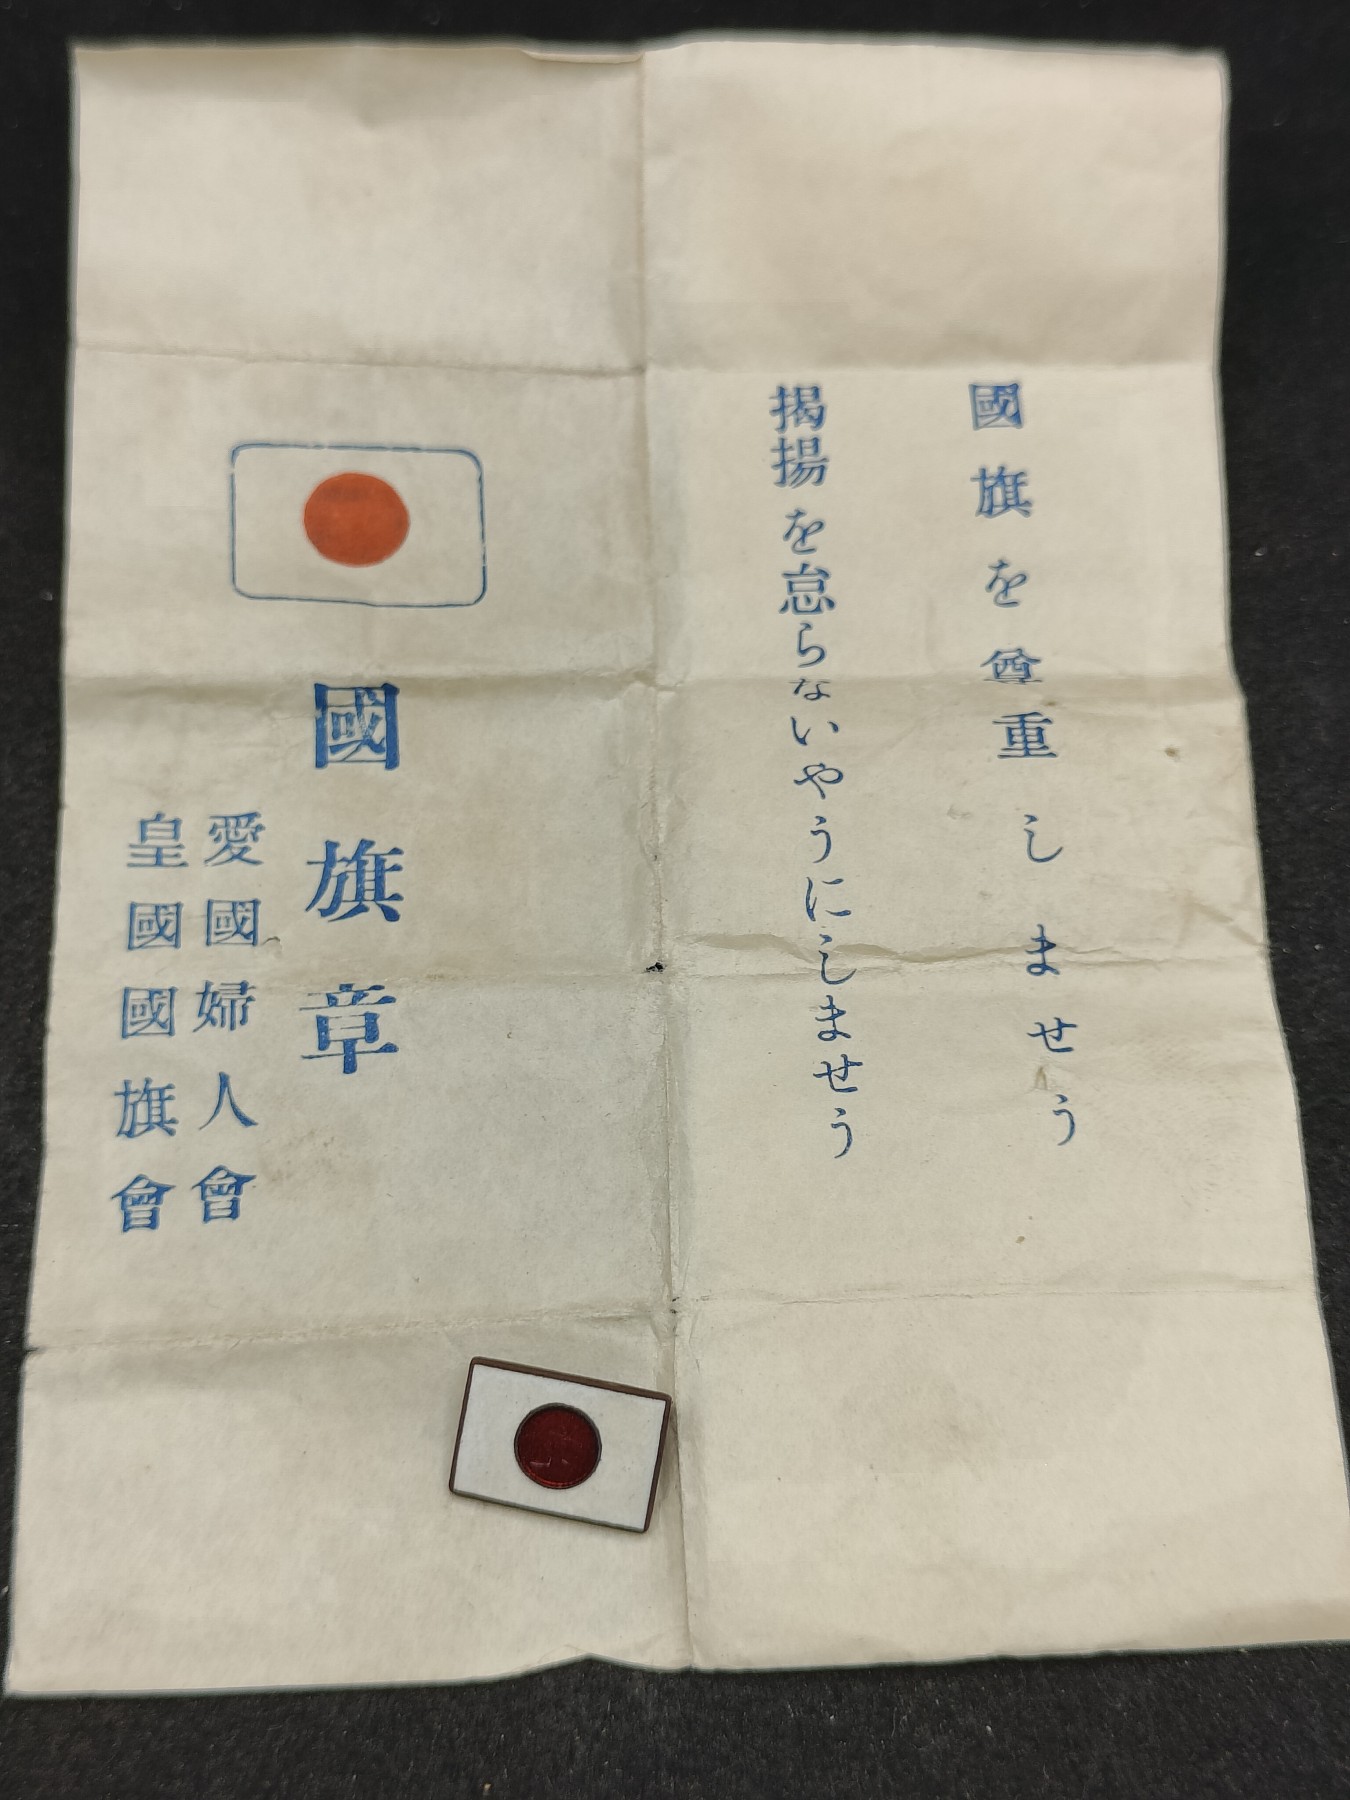 國旗を尊重しませう
掲揚を怠らないやうにしませう
國旗章
愛國婦人會
皇國國旗會